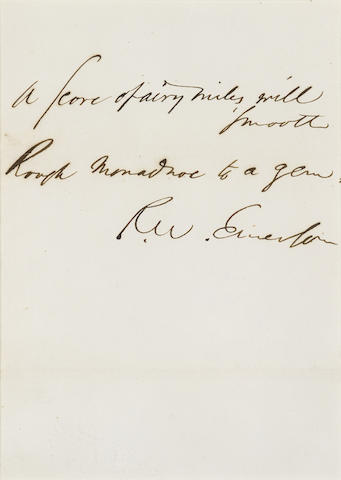 A score of airy miles will
smooth
Rough Monadnoc to a gem.
R.W. Emerson